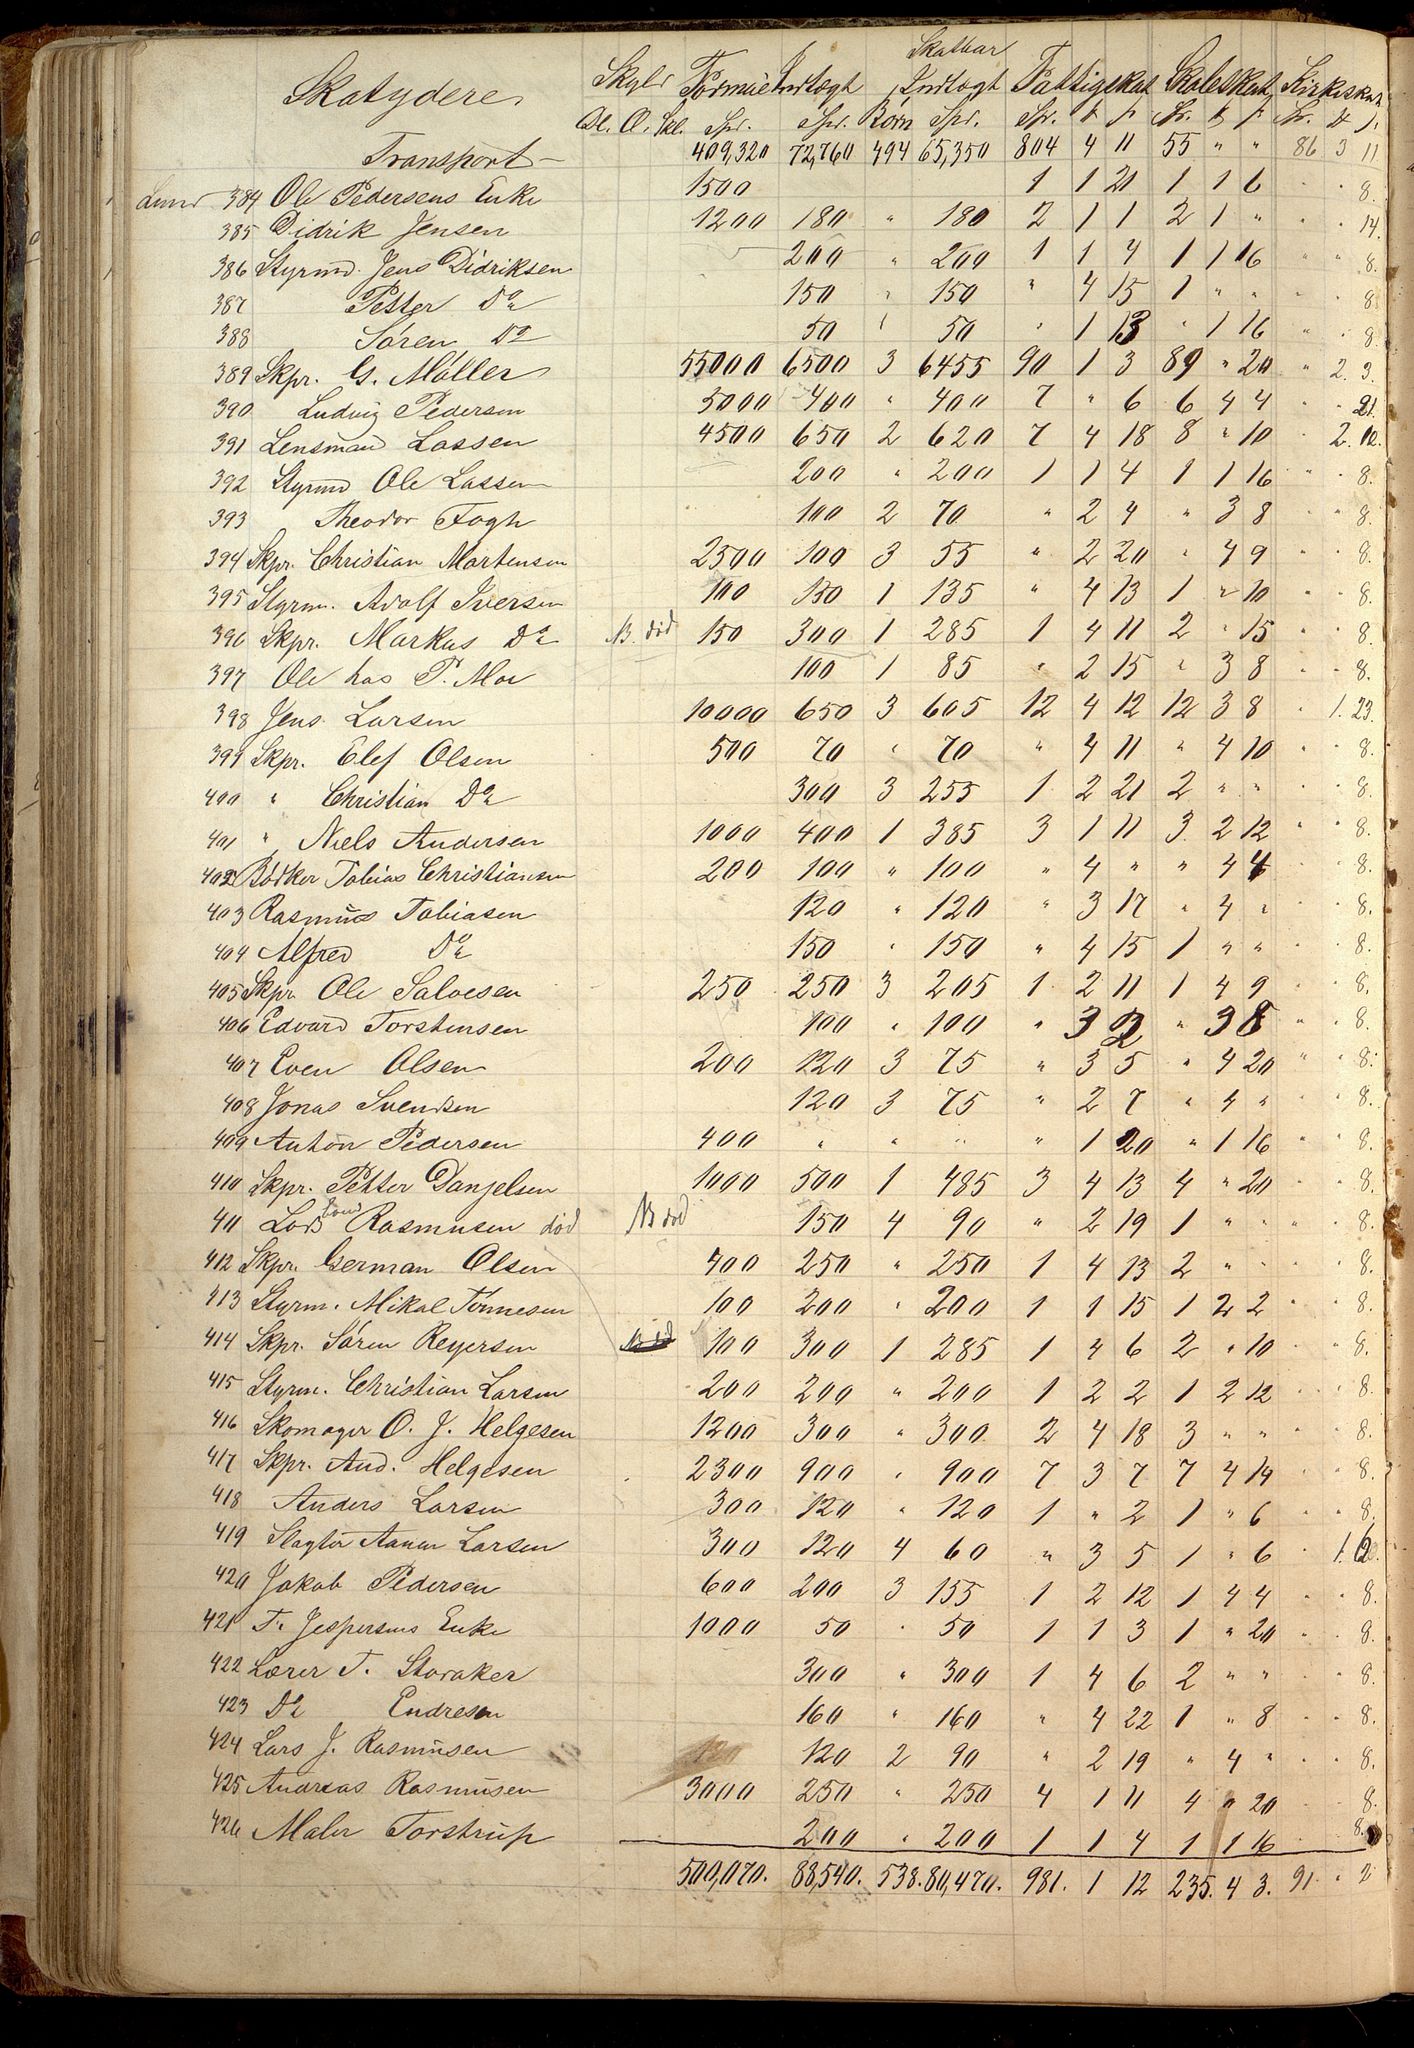 Skatbar
Skatydere Skyld Formue Indtægt Indtægt Fattigskat Skoleskat Kirkeskat
Dl. O. Skl. Spr. Spr. Børn Spr. Spr. Spr.
Transport 409,320 72,760 494 65,350 804 4 11 55 " " 86 3 11
Lund 384 Ole Pedersens Enke 1500 1 1 21 1 1 6 " " 8.
385 Didrik Jensen 1200 180 " 180 2 1 1 2 1 " " " 14.
386 Styrmd. Jens Didriksen 200 " 200 1 1 4 1 1 16 " " 8.
387 Petter Do 150 " 150 " 4 15 1 " " " " 8.
388 Søren Do 50 " 50 " 1 13 " 1 16 " " 8.
389 Skpr. G. Møller 55000 6500 3 6455 90 1 3 89 " 20 " 2. 3.
390 Ludvig Pedersen 5000 400 " 400 7 " 6 6 4 4 " " 21.
391 Lensmand Lassen 4500 650 2 620 7 4 18 8 " 10 " 2. 12.
392 Styrmd Ole Lassen 200 " 200 1 1 4 1 1 16 " " 8.
393 Theodor Fogh 100 2 70 " 2 4 " 3 8 " " 8.
394 Skpr. Christian Mortensen 2500 100 3 55 " 2 20 " 4 9 " " 8.
395 Styrm. Adolf Iversen 100 150 1 135 " 4 13 1 " 10 " " 8.
396 Skpr. Markus Do NB. død 150 300 1 285 1 4 11 2 " 15 " " 8.
397 Ole hos P. Moe 100 1 85 " 2 15 " 3 8 " " 8.
398 Jens Larsen 10000 650 3 605 12 4 12 12 3 8 " 1. 23.
399 Skpr. Elef Olsen 500 70 " 70 " 4 11 " 4 10 " " 8.
400 " Christian Do 300 3 255 1 2 21 2 " " " " 8.
401 " Niels Andersen 1000 400 1 385 3 1 11 3 2 12 " " 8.
402 Bødker Tobias Christiansen 200 100 " 100 " 4 " " 4 4 " " 8.
403 Rasmus Tobiasen 120 " 120 " 3 17 " 4 " " " 8.
404 Alfred Do 150 " 150 " 4 15 1 " " " " 8.
405 Skpr. Ole Salvesen 250 250 3 205 1 2 11 1 4 9 " " 8.
406 Edvard Torstensen 100 " 100 " 3 2 " 3 8 " " 8.
407 Even Olsen 200 120 3 75 " 3 5 " 4 20 " " 8.
408 Jonas Svendsen 120 3 75 " 2 7 " 4 " " " 8.
409 Anton Pedersen 400 " " " " 1 20 " 1 16 " " 8.
410 Skpr. Petter Danjelsen 1000 500 1 485 3 4 13 4 " 20 " " 8.
411 Lods Rasmusen død NB død 150 4 90 " 2 19 1 " " " " 8.
412 Skpr. German Olsen 400 250 " 250 1 4 13 2 " " " " 8.
413 Styrm. Mikal Tønnesen 100 200 " 200 1 1 15 1 2 2 " " 8.
414 Skpr. Søren Reyersen 100 300 1 285 1 4 6 2 " 10 " " 8.
415 Styrm. Christian Larsen 200 200 " 200 1 2 2 1 2 12 " " 8.
416 Skomager O. J. Helgesen 1200 300 " 300 2 4 18 3 " " " " 8.
417 Skpr. And. Helgesen 2300 900 " 900 7 3 7 7 4 14 " " 8.
418 Anders Larsen 300 120 " 120 1 " 2 1 " 6 " " 8.
419 Slagter Aanen Larsen 300 120 4 60 " 3 5 1 " 6 " 1.
420 Jakob Pedersen 600 200 3 155 1 2 12 1 4 4 " " 8.
421 T. Jespersens Enke 1000 50 " 50 1 1 3 1 " 20 " " 8.
422 Lærer T. Storaker 300 " 300 1 4 6 2 " " " " 8.
423 Do Endresen 160 " 160 " 4 22 1 " 8 " " 8.
424 Lars J. Rasmusen 120 120 2 90 " 2 19 " 4 " " " 8.
425 Andreas Rasmusen 3000 250 " 250 4 1 11 4 " 20 " " 8.
426 Maler Torstrup 200 " 200 1 1 4 1 1 16 " " 8.
500,070. 88,540. 538. 80,470. 981. 1 12 235. 4 3. 91 " 2